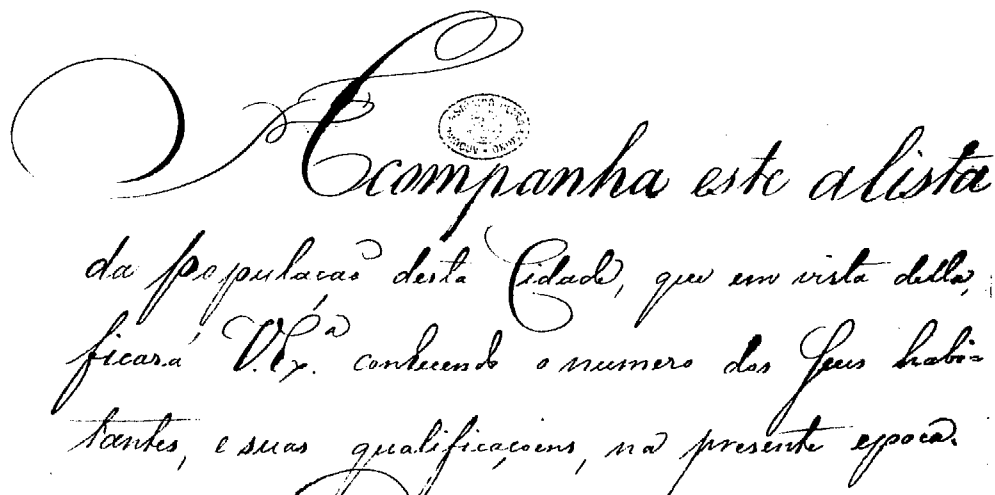 Acompanha este alista
da populacaõ desta Cidade, que em vista della,
ficará V. Ex.ª conhecendo o numero dos Seus habi=
tantes, e suas qualificaçoens, na presente epoca.